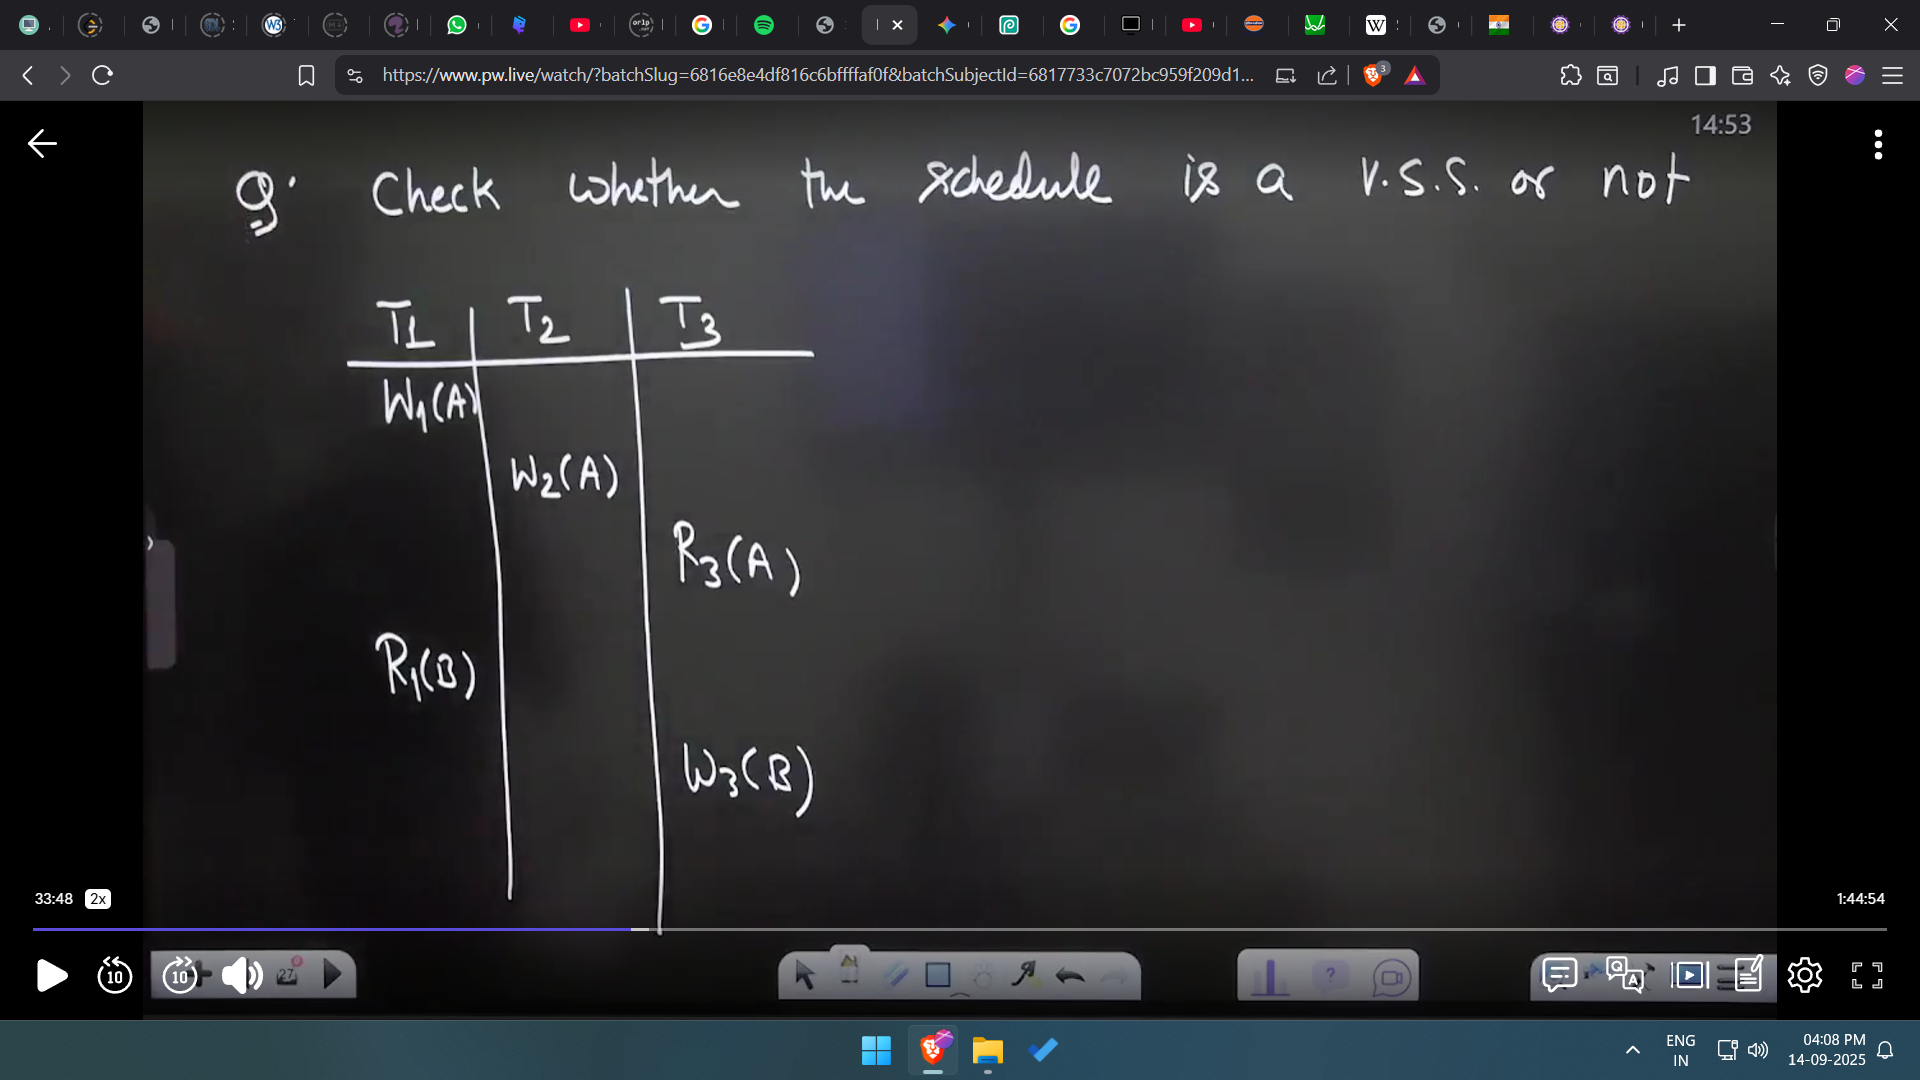 https://www.pw.live/watch/?batchSlug=6816e8e4df816c6bffffaf0f&batchSubjectId=6817733c7072bc959f209d1...
3
14:53
Q. Check whether the schedule is a V.S.S. or not
T1 T2 T3
W1(A)
W2(A)
R3(A)
R1(B)
W3(B)
33:48 2x 1:44:54
10 10 27
ENG
IN
04:08 PM
14-09-2025